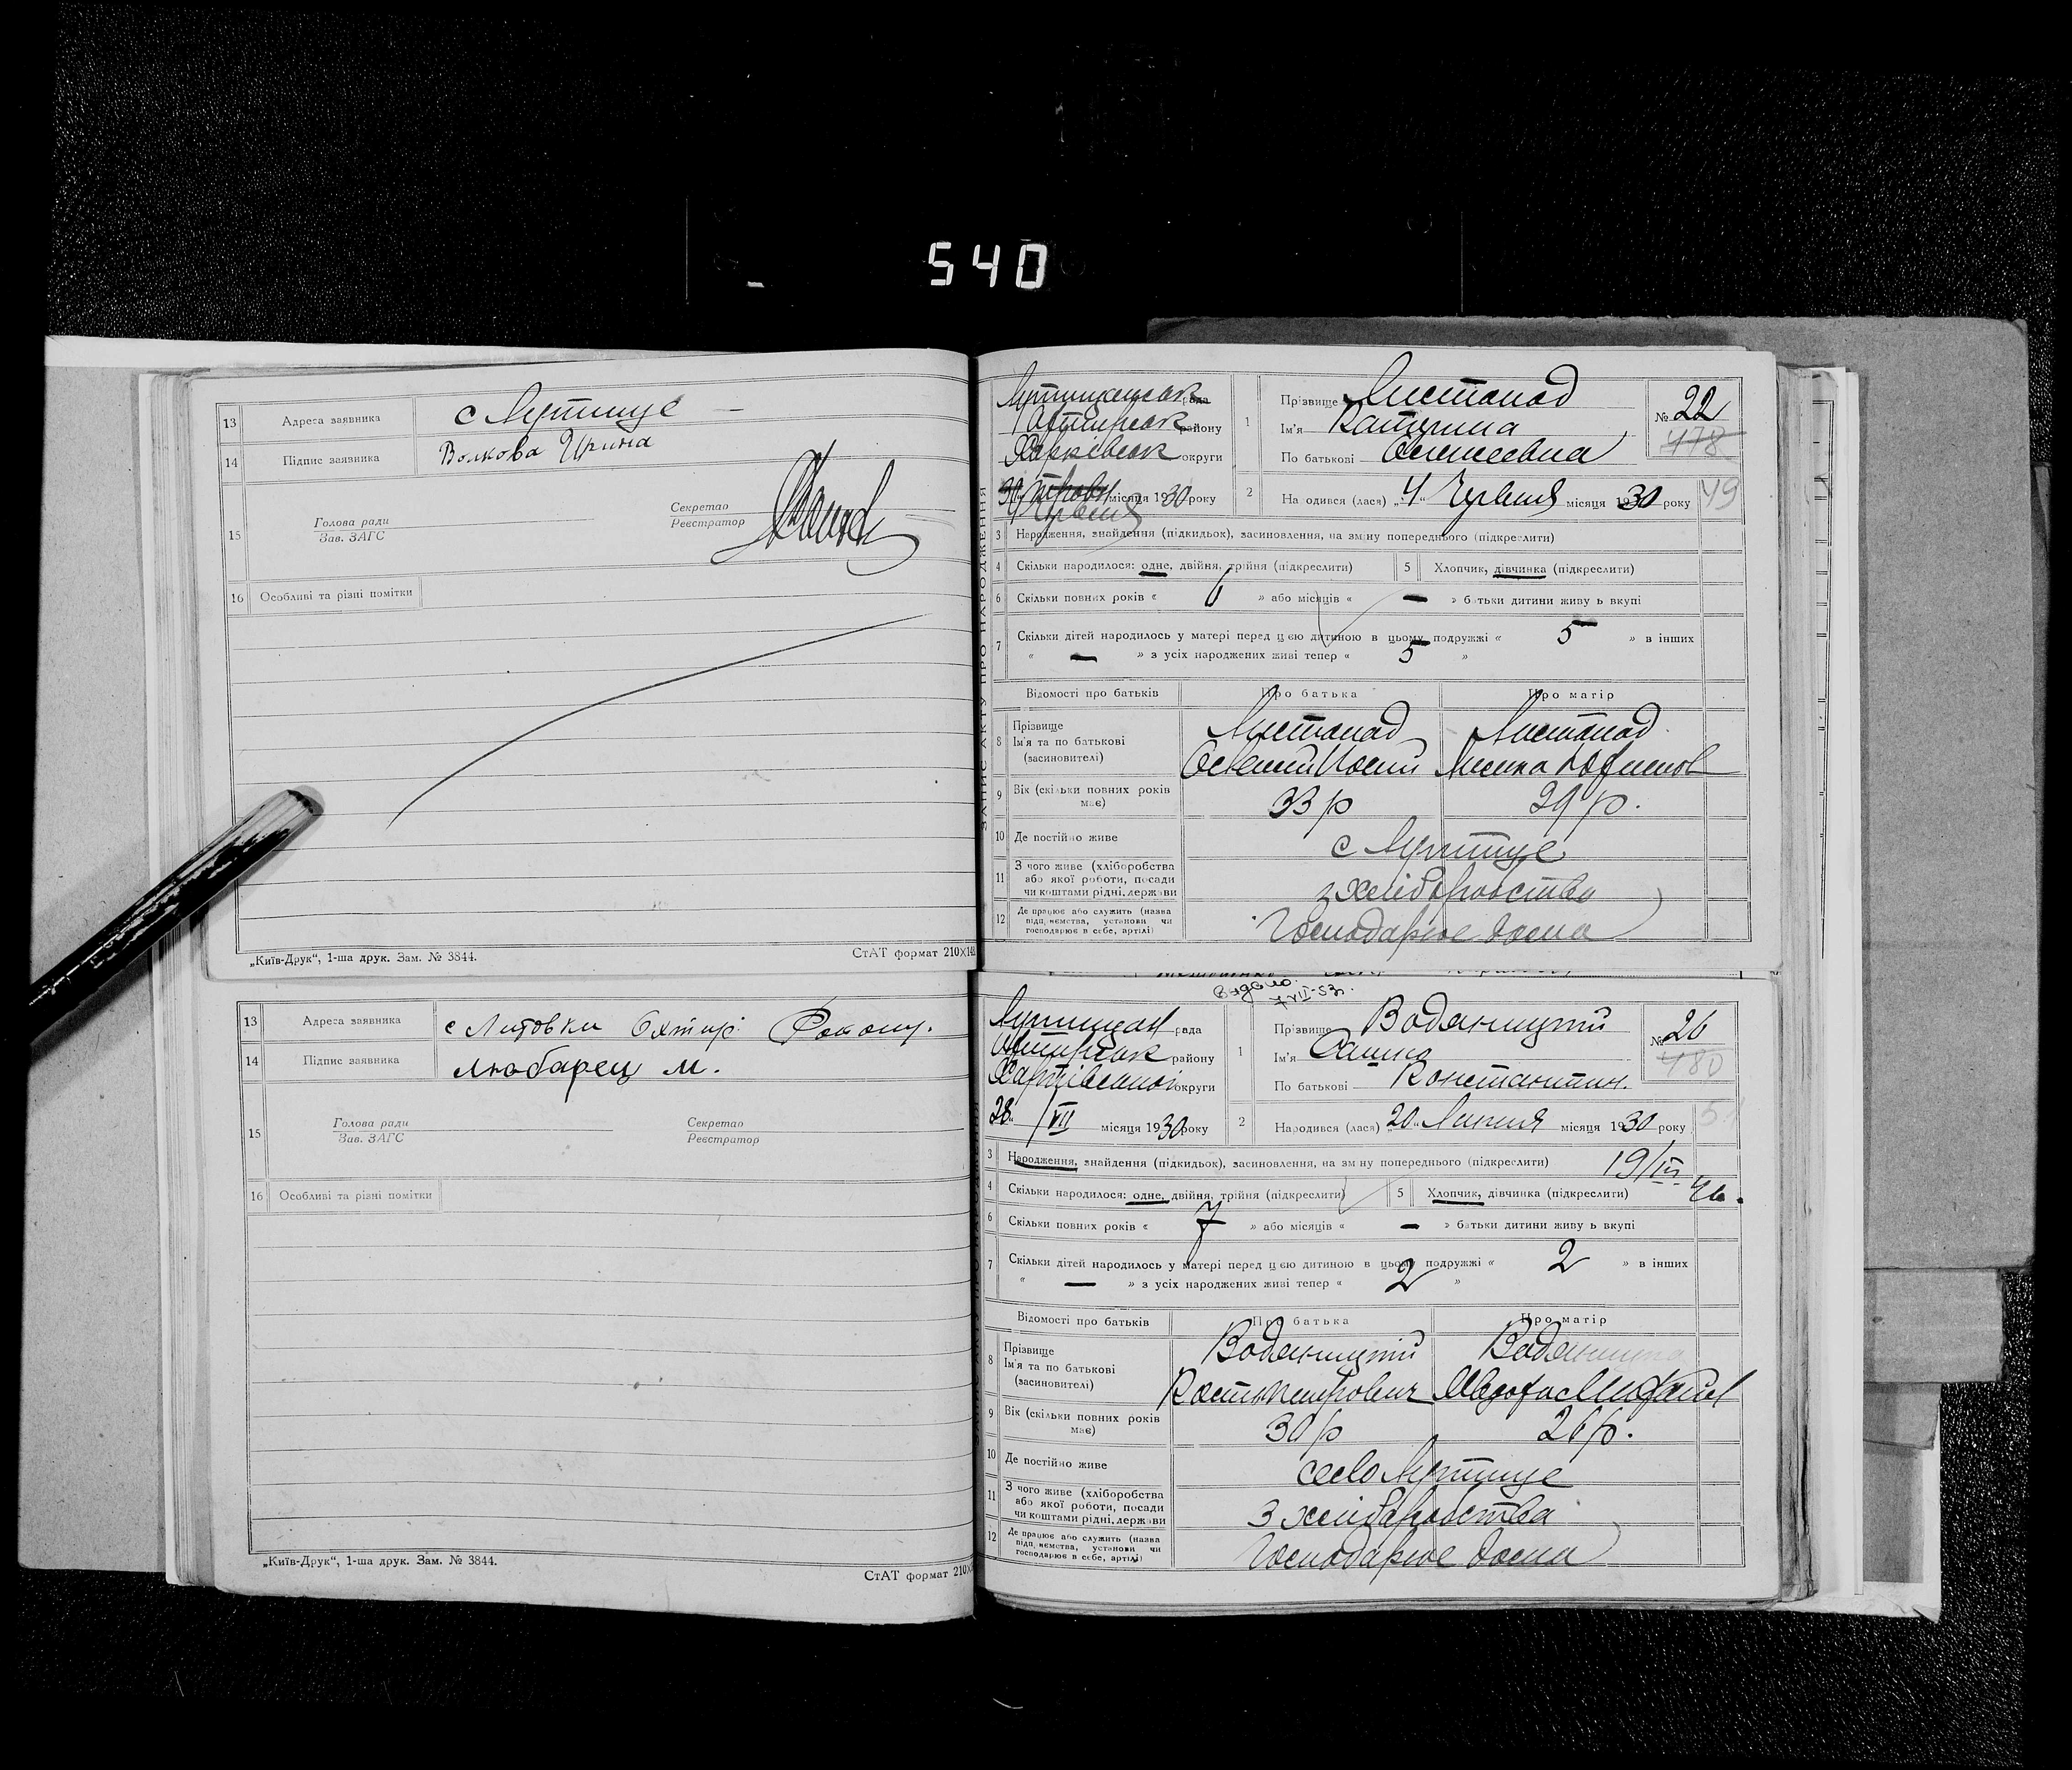 540
13 Адреса заявника с Лутище —
14 Підпис заявника Волкова Ирина
15 Голова ради
Зав. ЗАГС
Секретар
Реєстратор
16 Особливі та різні помітки
„Київ-Друк“, 1-ша друк. Зам. № 3844.
СтАТ формат 210×148
13 Адреса заявника с Литовки Охтир.
14 Підпис заявника Любарец М.
15 Голова ради
Зав. ЗАГС
Секретар
Реєстратор
16 Особливі та різні помітки
„Київ-Друк“, 1-ша друк. Зам. № 3844.
СтАТ формат 210×
ЗАПИС АКТУ ПРО НАРОДЖЕННЯ
рада
району
Харківськ округи
30 Червня місяця 1930 року
1 Прізвище Листопад
Ім'я Катерина
По батькові
№ 22
478
2 Народився (лася) „4“ Червня місяця 1930 року
49
3 Народження, знайдення (підкидьок), засиновлення, на зміну попереднього (підкреслити)
4 Скільки народилося: одне, двійня, трійня (підкреслити)
5 Хлопчик, дівчинка (підкреслити)
6 Скільки повних років « 6 » або місяців « — » батьки дитини живуть вкупі
7 Скільки дітей народилось у матері перед цією дитиною в цьому подружжі « 5 » в інших
« — » з усіх народжених живі тепер « 5 »
Відомості про батьків Про батька Про матір
8 Прізвище
Ім'я та по батькові
(засиновителі)
Листопад Листопад
9 Вік (скільки повних років
має)
33 р 29 р.
10 Де постійно живе с Лутище
11 З чого живе (хліборобства
або якої роботи, посади
чи коштами рідні, держави
з хліборобства
12 Де працює або служить (назва
підприємства, установи чи
господарює в себе, артілі)
Господарює дома
Видано
7 VII-53
рада
Охтирськ району
Харківської округи
28 / VII місяця 1930 року
1 Прізвище Водяницький
Ім'я
По батькові Константин.
№ 26
480
2 Народився (лася) „20“ Липня місяця 1930 року
3 Народження, знайдення (підкидьок), засиновлення, на зміну попереднього (підкреслити)
19/III
46.
4 Скільки народилося: одне, двійня, трійня (підкреслити)
5 Хлопчик, дівчинка (підкреслити)
6 Скільки повних років « 7 » або місяців « — » батьки дитини живуть вкупі
7 Скільки дітей народилось у матері перед цією дитиною в цьому подружжі « 2 » в інших
« — » з усіх народжених живі тепер « 2 »
Відомості про батьків Про батька Про матір
8 Прізвище
Ім'я та по батькові
(засиновителі)
Водяницький Водяницка
Кость Петрович
9 Вік (скільки повних років
має)
30 р 26 р.
10 Де постійно живе село Лутище
11 З чого живе (хліборобства
або якої роботи, посади
чи коштами рідні, держави
З хліборобства
12 Де працює або служить (назва
підприємства, установи чи
господарює в себе, артілі)
Господарює дома